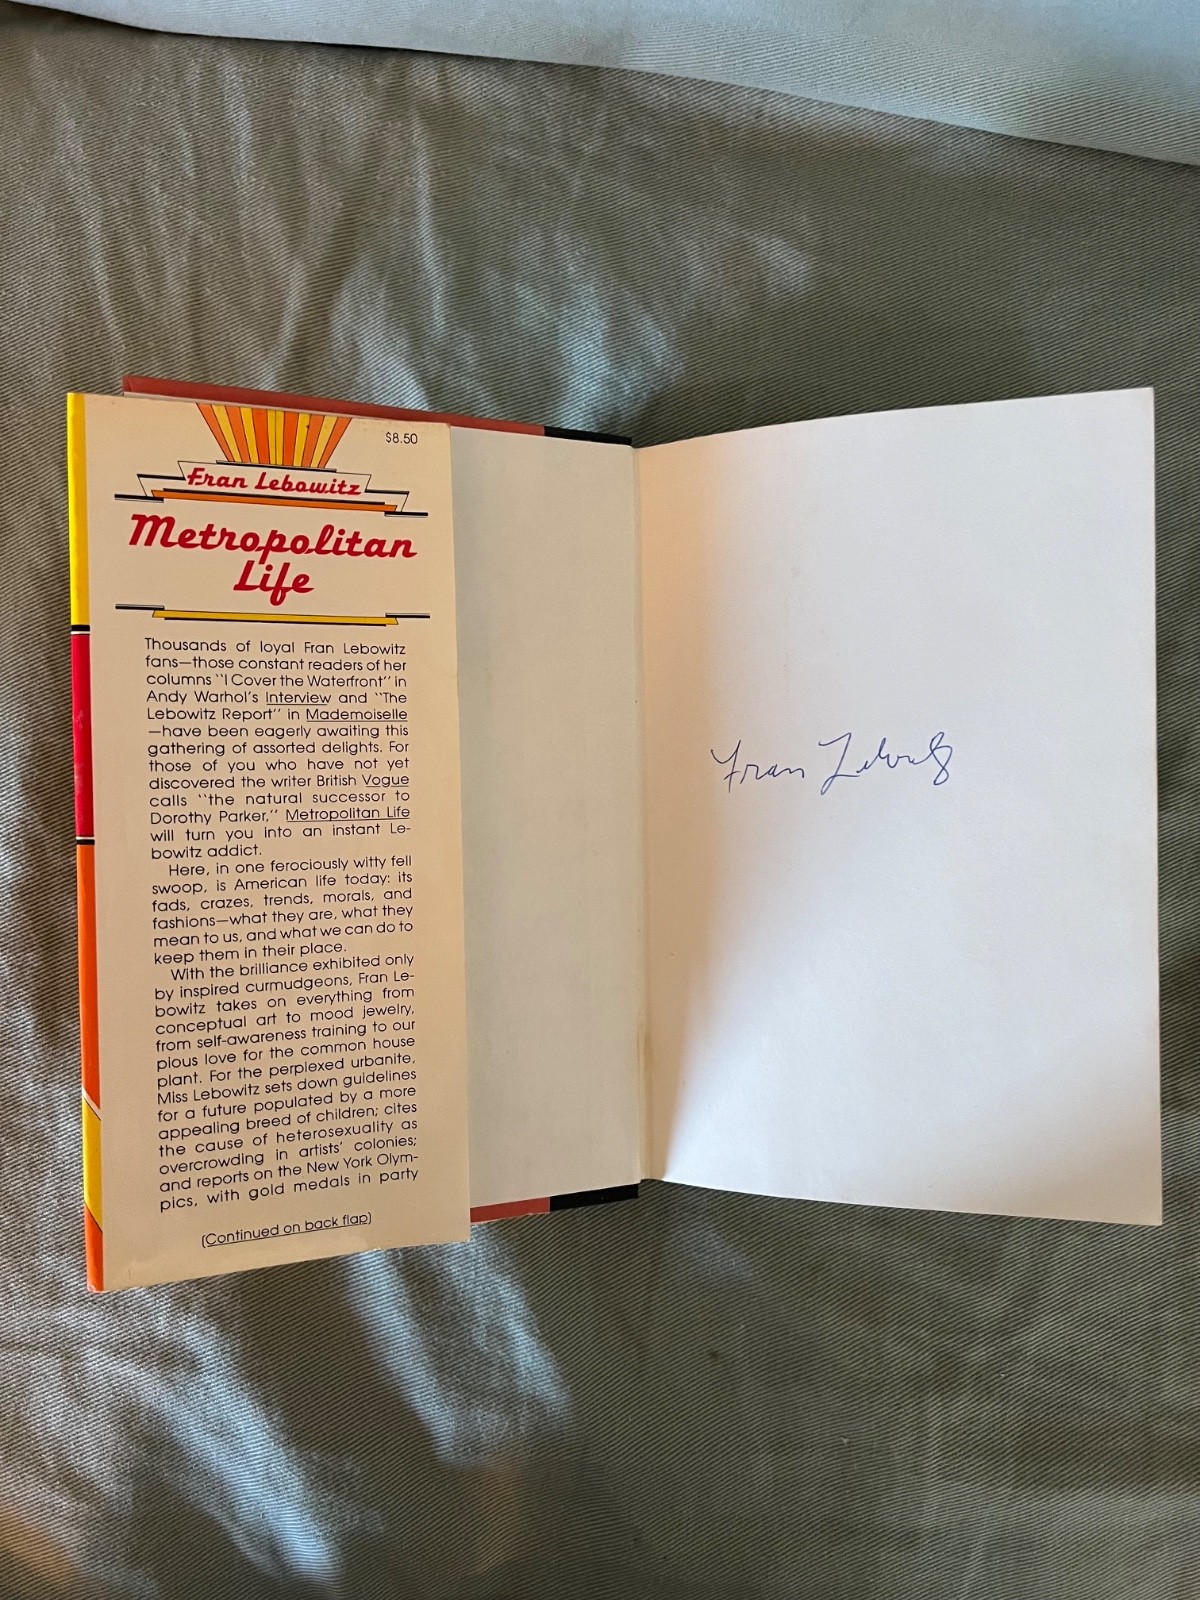 $8.50
Fran Lebowitz
Metropolitan
Life
Thousands of loyal Fran Lebowitz
fans—those constant readers of her
columns "I Cover the Waterfront" in
Andy Warhol's Interview and "The
Lebowitz Report" in Mademoiselle
—have been eagerly awaiting this
gathering of assorted delights. For
those of you who have not yet
discovered the writer British Vogue
calls "the natural successor to
Dorothy Parker," Metropolitan Life
will turn you into an instant Le-
bowitz addict.
Here, in one ferociously witty fell
swoop, is American life today: its
fads, crazes, trends, morals, and
fashions—what they are, what they
mean to us, and what we can do to
keep them in their place.
With the brilliance exhibited only
by inspired curmudgeons, Fran Le-
bowitz takes on everything from
conceptual art to mood jewelry,
from self-awareness training to our
pious love for the common house
plant. For the perplexed urbanite,
Miss Lebowitz sets down guidelines
for a future populated by a more
appealing breed of children; cites
the cause of heterosexuality as
overcrowding in artists' colonies;
and reports on the New York Olym-
pics, with gold medals in party
(Continued on back flap)
Fran Lebowitz